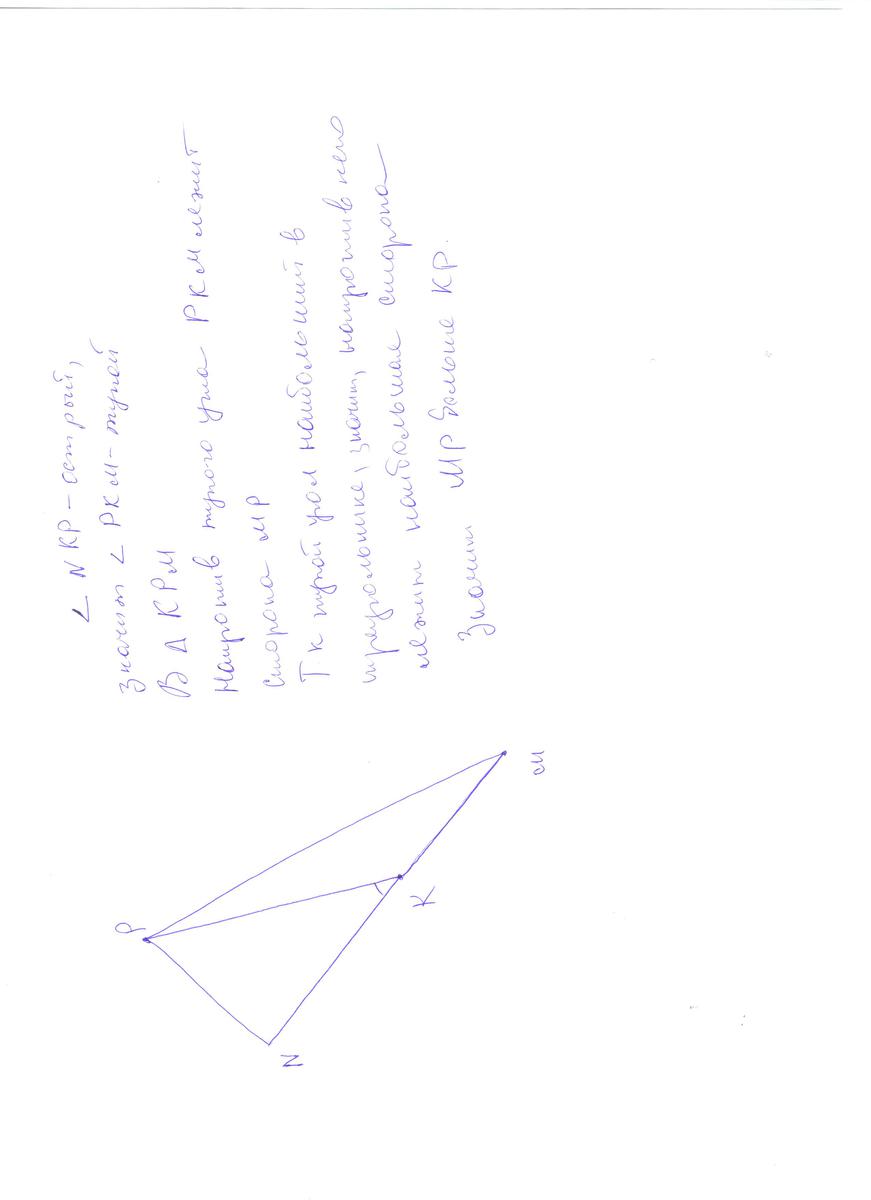 ∠ NKP - острый,
значит ∠ PKM - тупой
В Δ KPM
Напротив тупого угла PKM лежит
сторона MP
Т.к тупой угол наибольший в
треугольнике, значит, напротив него
лежит наибольшая сторона
Значит MP больше KP.
P
N
K
M